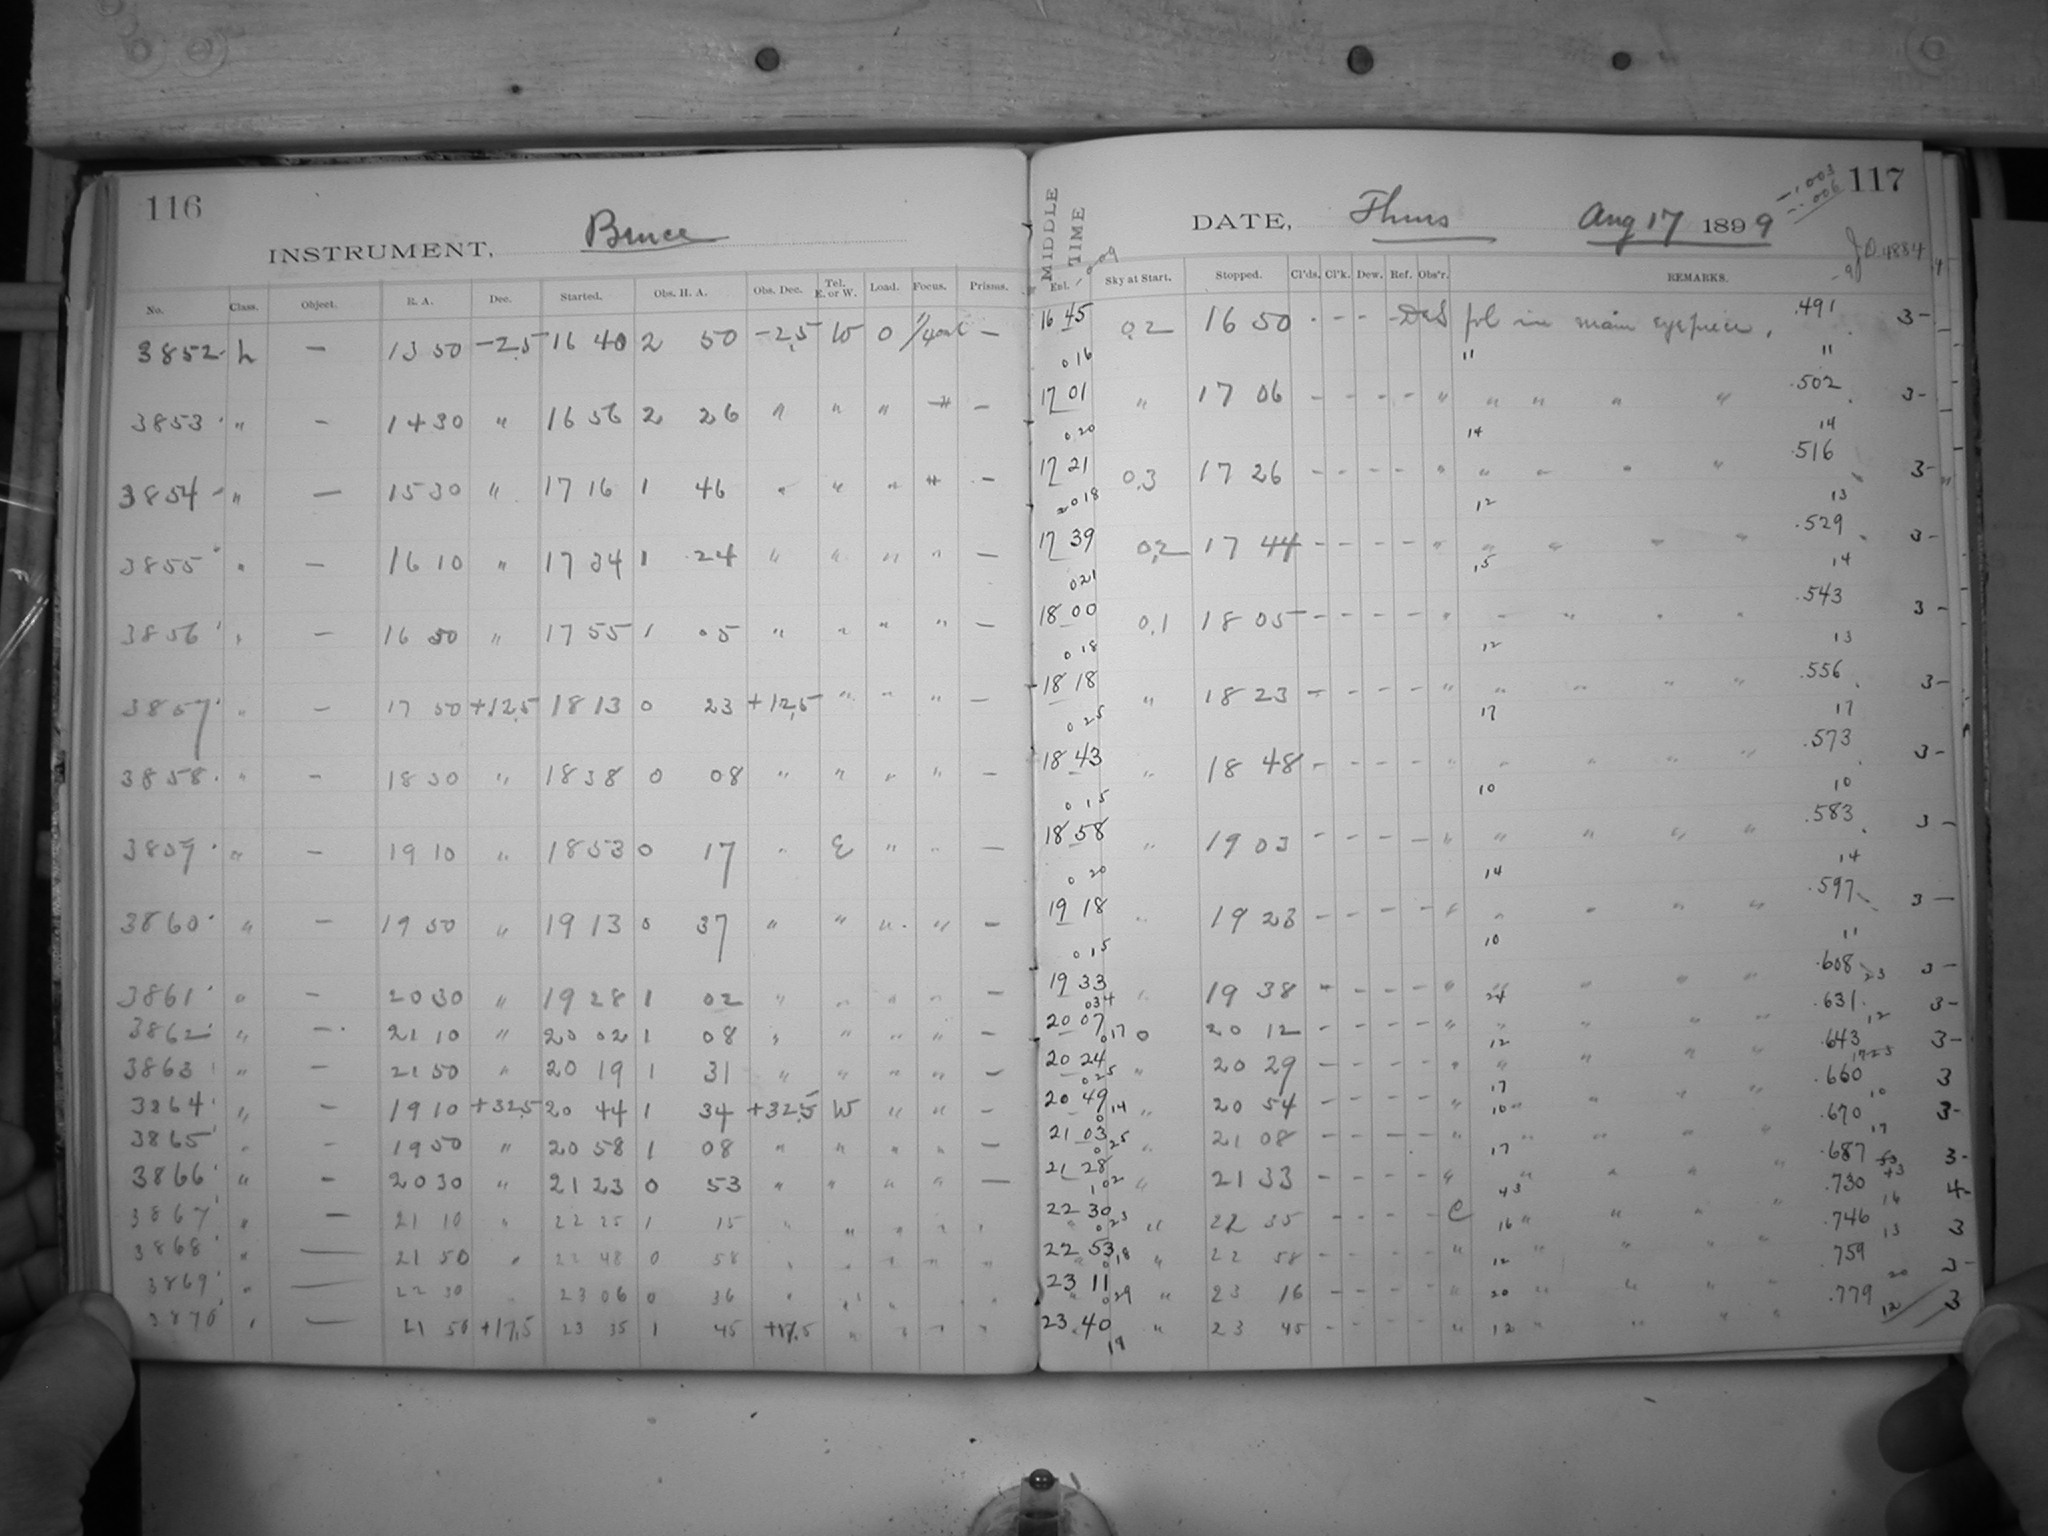 116
INSTRUMENT, Bruce
No. Class. Object. R. A. Dec. Started. Obs. H. A. Obs. Dec. Tel. E. or W. Load. Focus. Prisms.
3852 L — 13 50 -2.5 16 40 2 50 -2.5 W 0 —
3853 " — 14 30 " 16 56 2 26 " " " —
3854 " — 15 30 " 17 16 1 46 " " " —
3855 " — 16 10 " 17 34 1 24 " " " " —
3856 " — 16 50 " 17 55 1 05 " " " " —
3857 " — 17 50 +12.5 18 13 0 23 +12.5 " " " —
3858 " — 18 30 " 18 38 0 08 " " " " —
3859 " — 19 10 " 18 53 0 17 " E " " —
3860 " — 19 50 " 19 13 0 37 " " " " —
3861 " — 20 30 " 19 28 1 02 " " " " —
3862 " — 21 10 " 20 02 1 08 " " " " —
3863 " — 21 50 " 20 19 1 31 " " " " —
3864 " — 19 10 +32.5 20 44 1 34 +32.5 W " " —
3865 " — 19 50 " 20 58 1 08 " " " " —
3866 " — 20 30 " 21 23 0 53 " " " " —
3867 " — 21 10 " 22 25 1 15 " " " " "
3868 " — 21 50 " 22 48 0 58 " " " " "
3869 " — 22 30 " 23 06 0 36 " " " " "
3870 " — 21 50 +17.5 23 35 1 45 +17.5 " " " "
117
-.003
-.006
MIDDLE TIME
DATE, Thurs Aug 17 1899
J.D. 4884
Ex. Sky at Start. Stopped. Cl'ds. Cl'k. Dew. Ref. Obs'r. REMARKS.
16 45 0.2 16 50 - - - - DeS pol in main eyepiece. .491 3-
0 16 11 11
17 01 " 17 06 - - - - " " " " " .502 3-
0 20 14 14
17 21 0.3 17 26 - - - - " " " " " .516 3-
0 18 12 13
17 39 0.2 17 44 - - - - " " " " " .529 3-
0 21 15 14
18 00 0.1 18 05 - - - - " " " " " .543 3-
0 18 12 13
18 18 " 18 23 - - - - " " " " " .556 3-
0 25 17 17
18 43 " 18 48 - - - - " " " " " .573 3-
0 15 10 10
18 58 " 19 03 - - - - " " " " " .583 3-
0 20 14 14
19 18 " 19 23 - - - - " " " " " .597 3-
0 15 10 11
19 33 " 19 38 - - - - " " " " " .608 3-
0 34 24 23
20 07 0 20 12 - - - - " " " " " .631 3-
0 17 12 12
20 24 " 20 29 - - - - " " " " " .643 3-
0 25 17
20 49 " 20 54 - - - - " " " " " .660 3
0 14 10 10
21 03 " 21 08 - - - - " " " " " .670 3-
0 25 17 17
21 28 " 21 33 - - - - " " " " " .687 3-
1 02 43 43
22 30 " 22 35 - - - - C " " " " .730 4-
0 23 16 16
22 53 " 22 58 - - - - " " " " " .746 3
0 18 12 13
23 11 " 23 16 - - - - " " " " " .759 3-
0 29 20 20
23 40 " 23 45 - - - - " " " " " .779 3
18 12 12